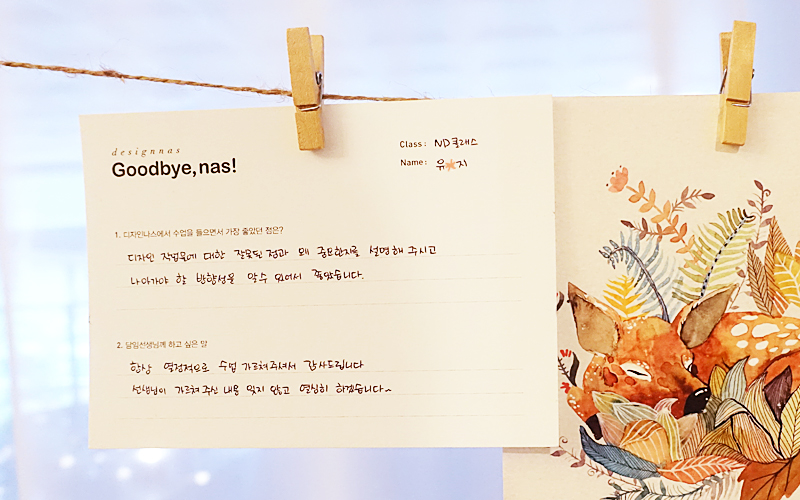 designnas
Goodbye, nas!
Class: ND클래스
Name: 유 지
1. 디자인나스에서 수업을 들으면서 가장 좋았던 점은?
디자인 작업물에 대한 잘못된 점과 왜 중요한지를 설명해 주시고
나아가야 할 방향성을 알 수 있어서 좋았습니다.
2. 담임선생님께 하고 싶은 말
항상 열정적으로 수업 가르쳐주셔서 감사드립니다
선생님이 가르쳐주신 내용 잊지 않고 열심히 하겠습니다~